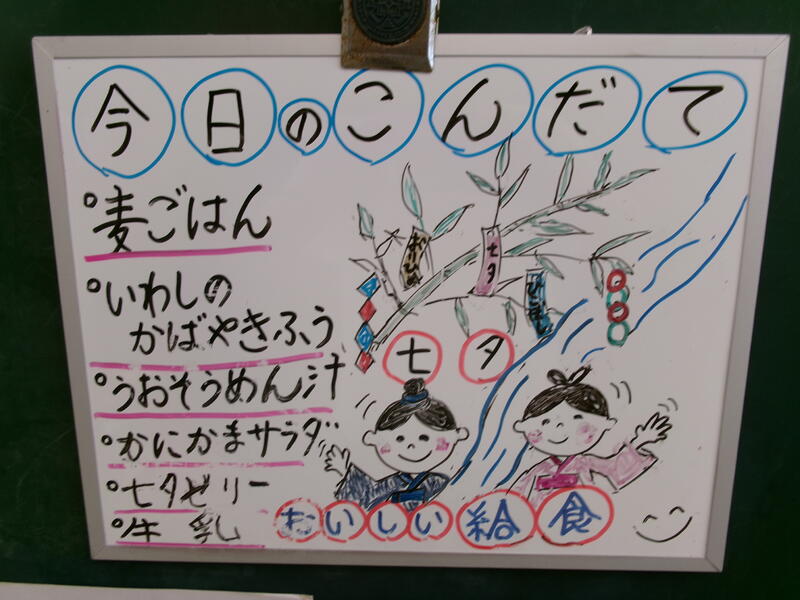 今日のこんだて
麦ごはん
いわしの
かばやきふう
うおそうめん汁
かにかまサラダ
七夕ゼリー
牛乳
おりひめ
七夕
ひこぼし
七夕
おいしい給食